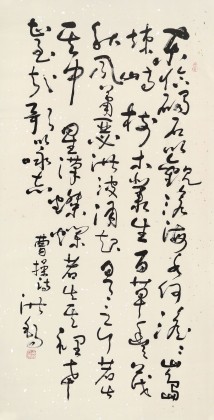 東臨碣石以觀滄海水何澹澹山島
竦峙樹木叢生百草豐茂
秋風蕭瑟洪波湧起日月之行若出
其中星漢燦爛若出其裡幸
甚至哉歌以詠志
曹操詩